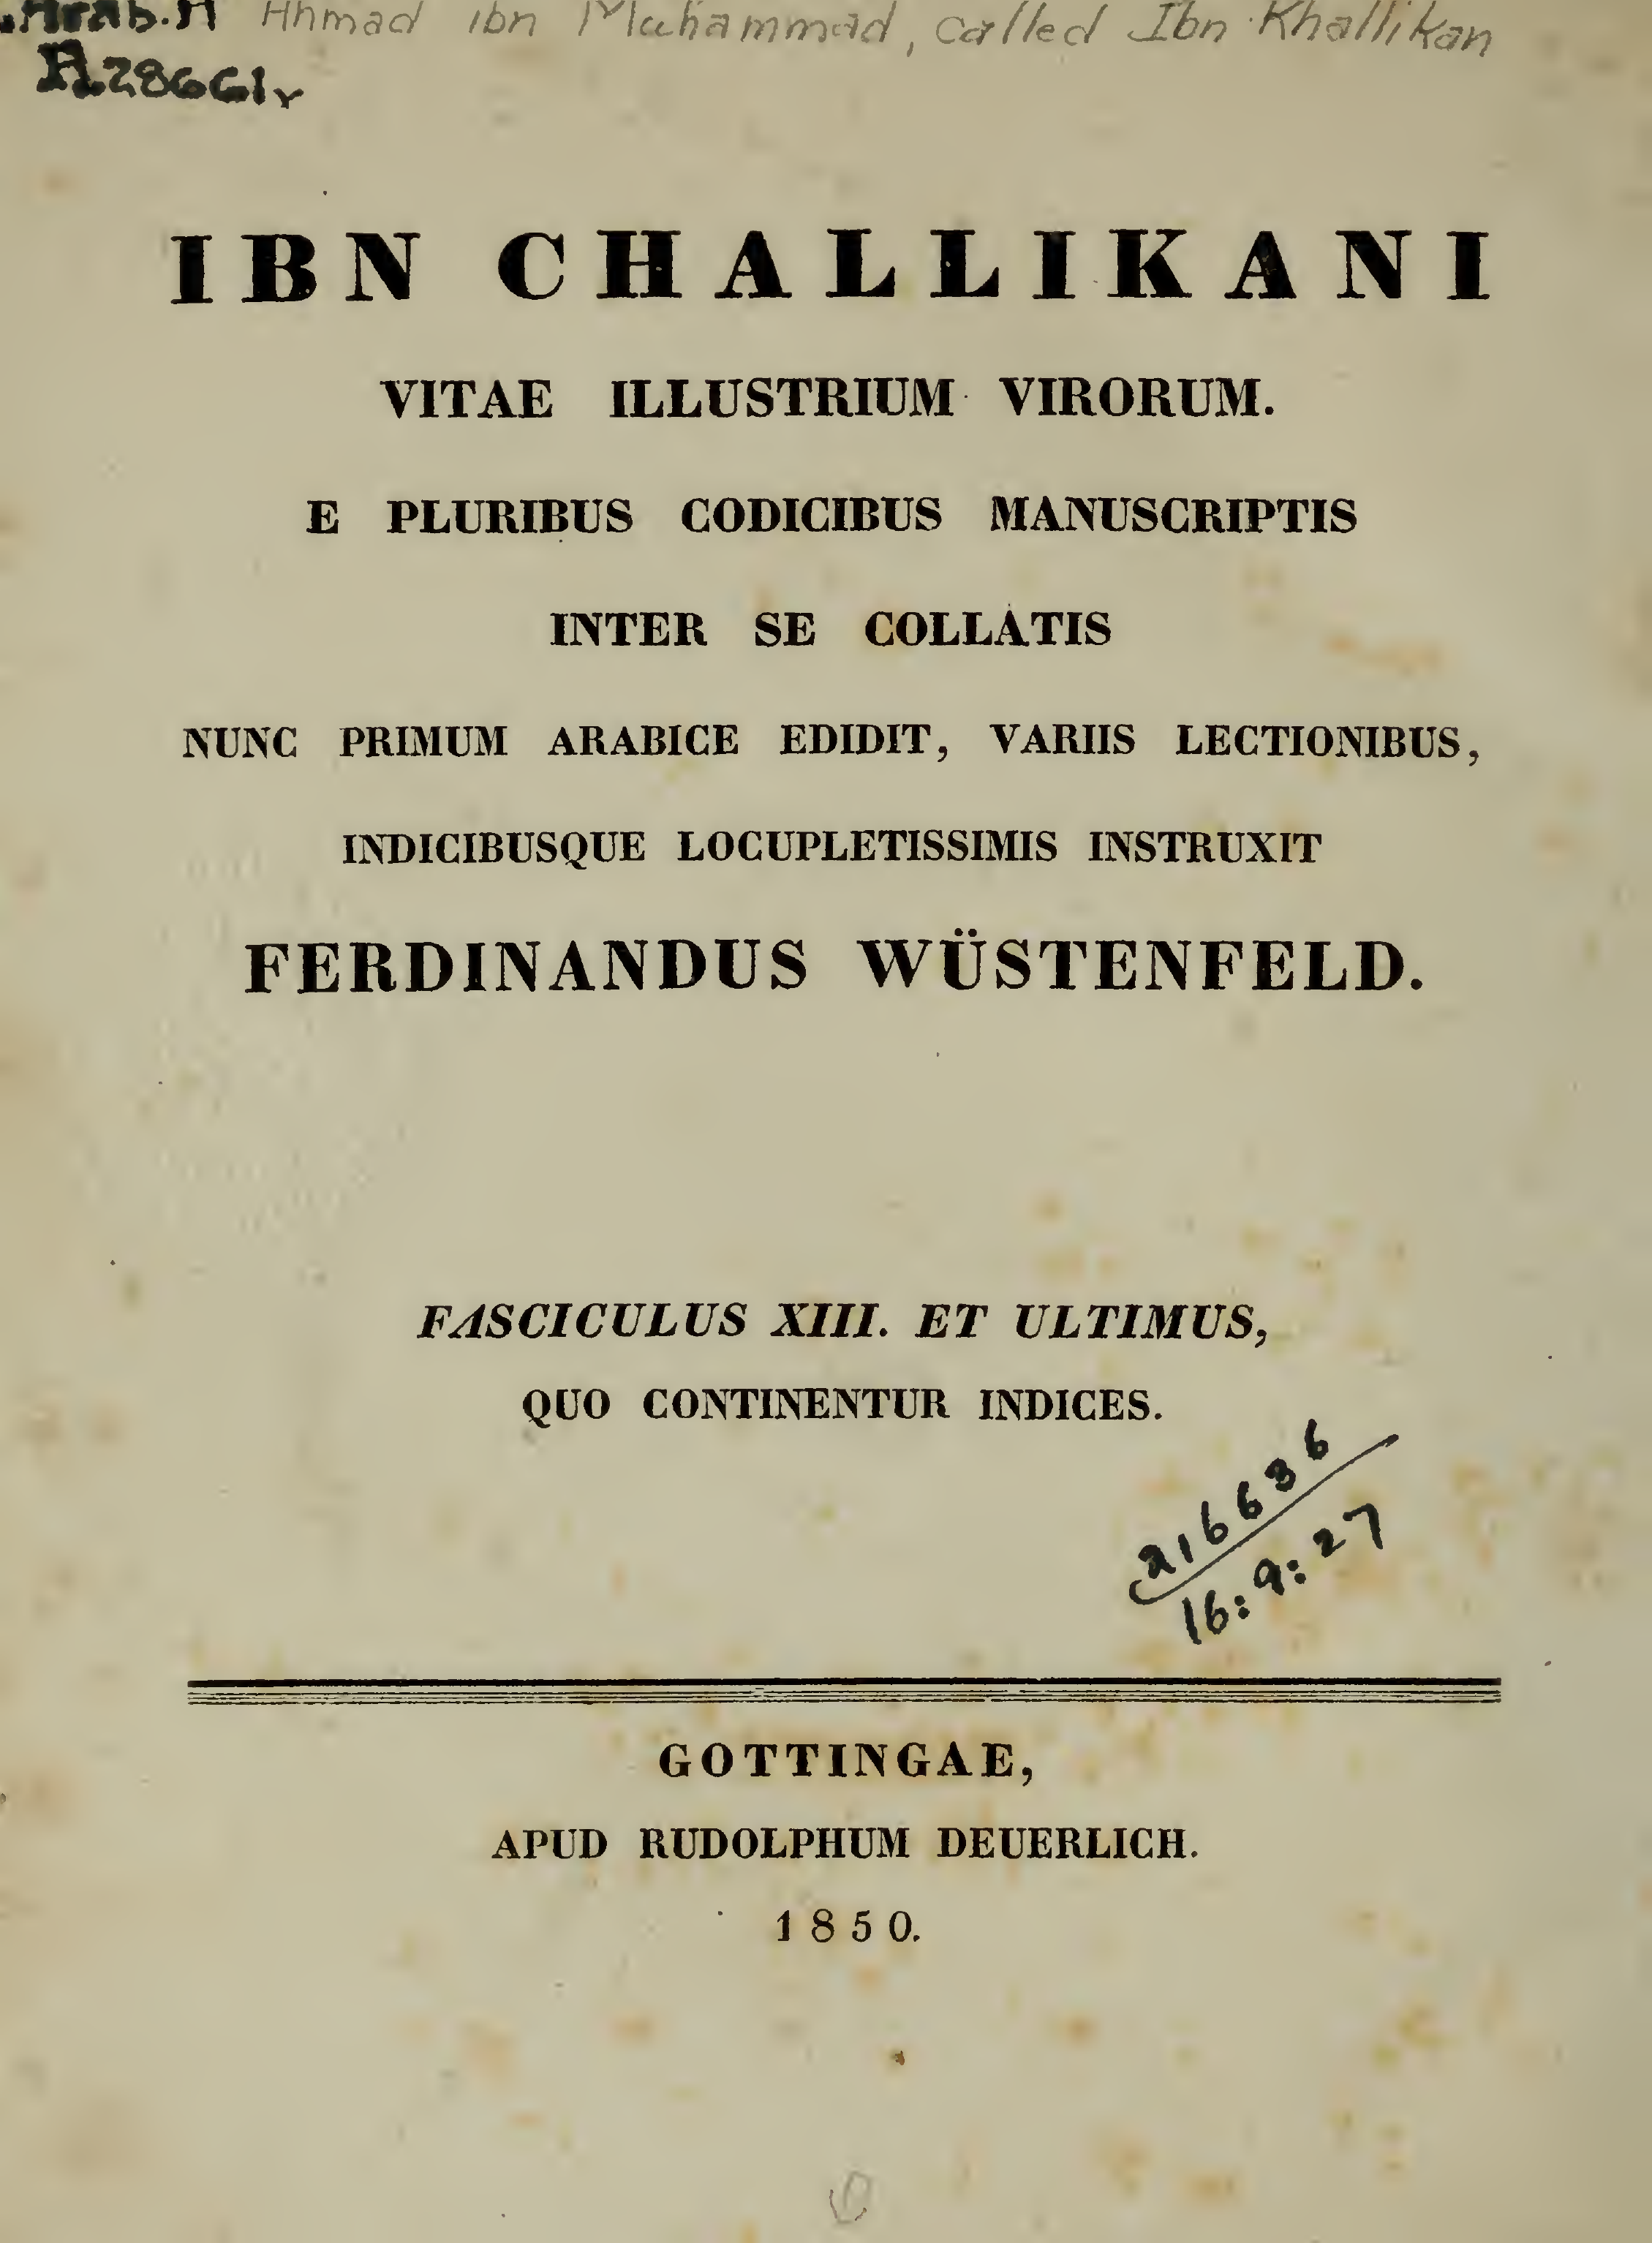 Ahmad ibn Muhammad, called Ibn Khallikan
IBN CHALLIKANI
VITAE ILLUSTRIUM VIRORUM.
E PLURIBUS CODICIBUS MANUSCRIPTIS
INTER SE COLLATIS
NUNC PRIMUM ARABICE EDIDIT, VARIIS LECTIONIBUS,
INDICIBUSQUE LOCUPLETISSIMIS INSTRUXIT
FERDINANDUS WÜSTENFELD.
FASCICULUS XIII. ET ULTIMUS,
QUO CONTINENTUR INDICES.
216636
16:9:27
GOTTINGAE,
APUD RUDOLPHUM DEUERLICH.
1850.